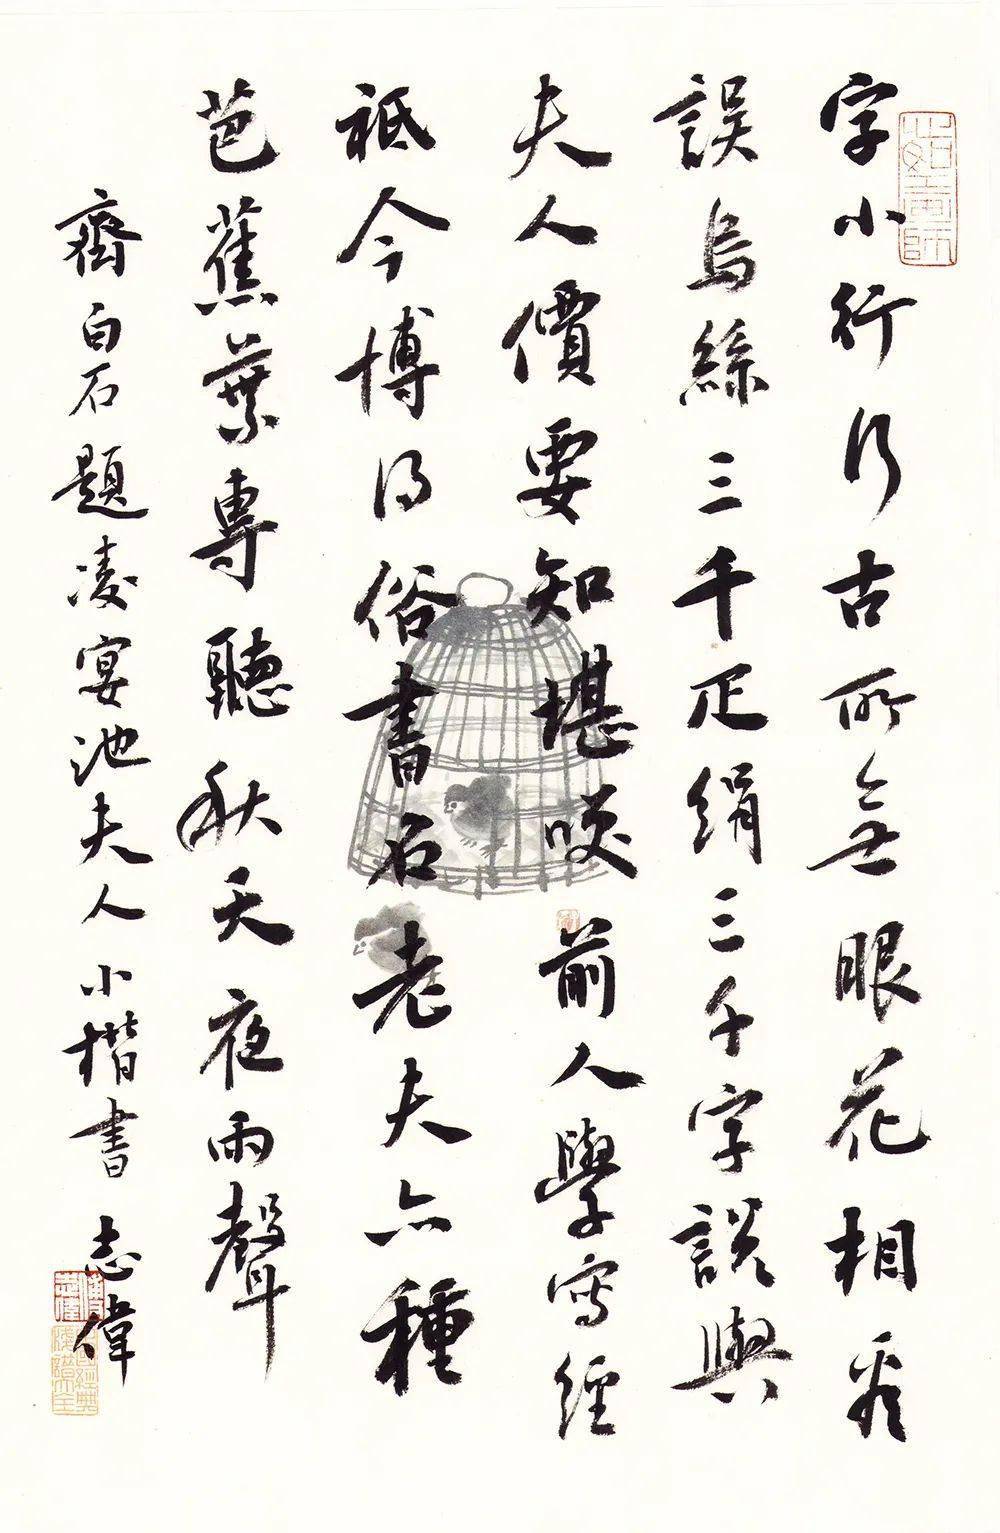 字小行行古所無眼花相看
誤烏絲三千疋絹三千字說與
夫人價要知堪咲前人學寫經
祗今博得俗書名老夫亦種
芭蕉葉專聽秋天夜雨聲
齊白石題凌宴池夫人小楷書 志偉